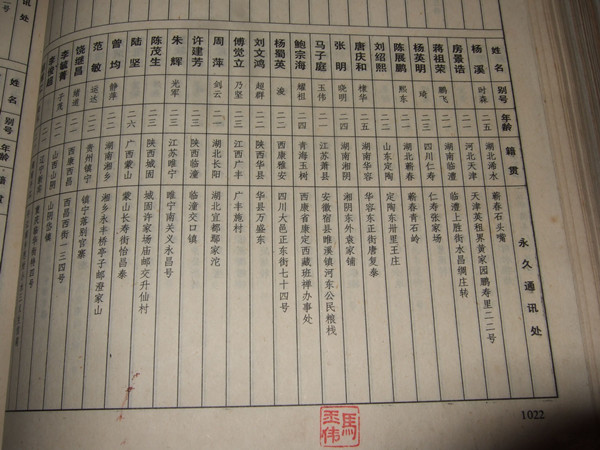 姓名 别号 年龄 籍贯 永久通讯处
杨溪 时森 二五 湖北浠水 蕲春石头嘴
房景诰 二一 河北天津 天津英租界黄家园鹏寿里二二号
蒋祖荣 鹏飞 二一 湖南临澧 临澧上胜街水昌绸庄转
杨英明 琦 二三 四川仁寿 仁寿张家场
陈展鹏 二一 湖北蕲春 蕲春青石岭
刘绍熙 熙东 二二 山东定陶 定陶东卅里王庄
唐庆和 棣华 二五 湖南华容 华容东正街唐复泰
张明 晓明 二四 湖南湘阴 湘阴东外袁家铺
马子庭 玉伟 二四 江苏萧县 安徽宿县睢溪镇河东公民粮栈
鲍宗海 耀祖 二四 青海玉树 西康省康定西藏班禅办事处
杨蜀英 浚 二二 西康雅安 四川大邑正东街七十四号
刘文鸿 超群 二一 陕西华县 华县万盛东
傅觉立 乃坚 二三 江西广丰 广丰施村
周萍 剑云 二一 湖北长阳 湖北宜都鄢家沱
许建芳 二三 陕西临潼 临潼交口镇
朱辉 光军 二三 江苏睢宁 睢宁南关义永昌号
陈茂生 二三 陕西城固 城固许家场庙邮交升仙村
陆坚 二六 广西蒙山 蒙山长寿街怡昌泰
曾均 静萍 二二 湖南湘乡 湘乡永丰桥亭子邮澄家山
范敏 运达 二二 贵州镇宁 镇宁落别官寨
饶继昌 绪道 二一 西康西昌 西昌西街一三四号
李毓菁 子茂 二一 山西山阴 山阴岱镇
姓名 别号 年龄 籍贯
1022
马玉伟